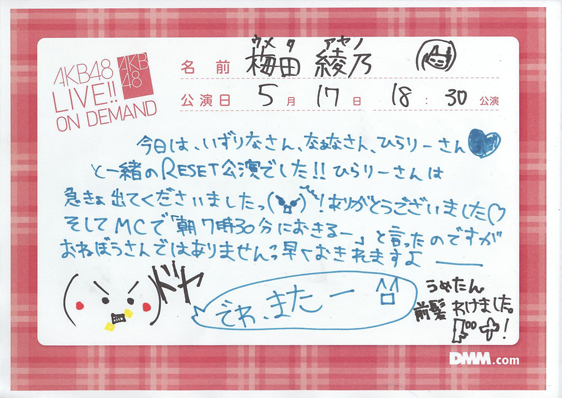 AKB48
LIVE!!
ON DEMAND
AKB
48
ウメダ アヤノ
名前 梅田 綾乃
公演日 5月17日 18:30公演
今日は、いずりなさん、なぁなさん、ひらりーさん
と一緒のRESET公演でした!!ひらりーさんは
急きょ出てくださいましたっ!ありがとうございました♡
そしてMCで「朝7時30分におきるー」と言ったのですが
おねぼうさんではありませんっ早くおきれますよ――
ドヤ
でわ、またー
うめたん
前髪わけました。
ドヤ!
DMM.com